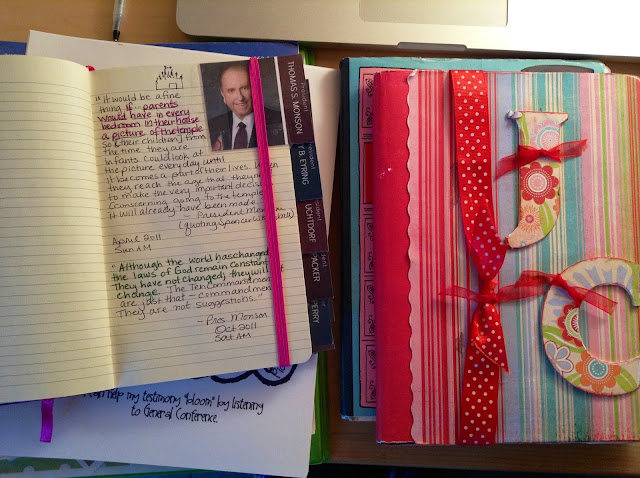 "It would be a fine
thing if... parents
would have in every
bedroom in their house
a picture of the temple
so their children from
the time they are
infants could look at
the picture everyday until
it becomes a part of their lives. When
they reach the age that they
to make the very important decis
concerning going to the temple
it will already have been made
- President Mon
(quoting Spencer W. ball)
April 2011
Sun AM
"Although the world has changed
the laws of God remain constant
They have not changed; they will
change. The Ten Commandments
are just that - commandmen
They are not suggestions."
- Pres. Monson
Oct 2011
Sat AM
President
THOMAS S. MONSON
President
Y B. EYRING
President
UCHTDORF
PACKER
PERRY
can help my testimony "bloom" by listening
to General Conference
J
C